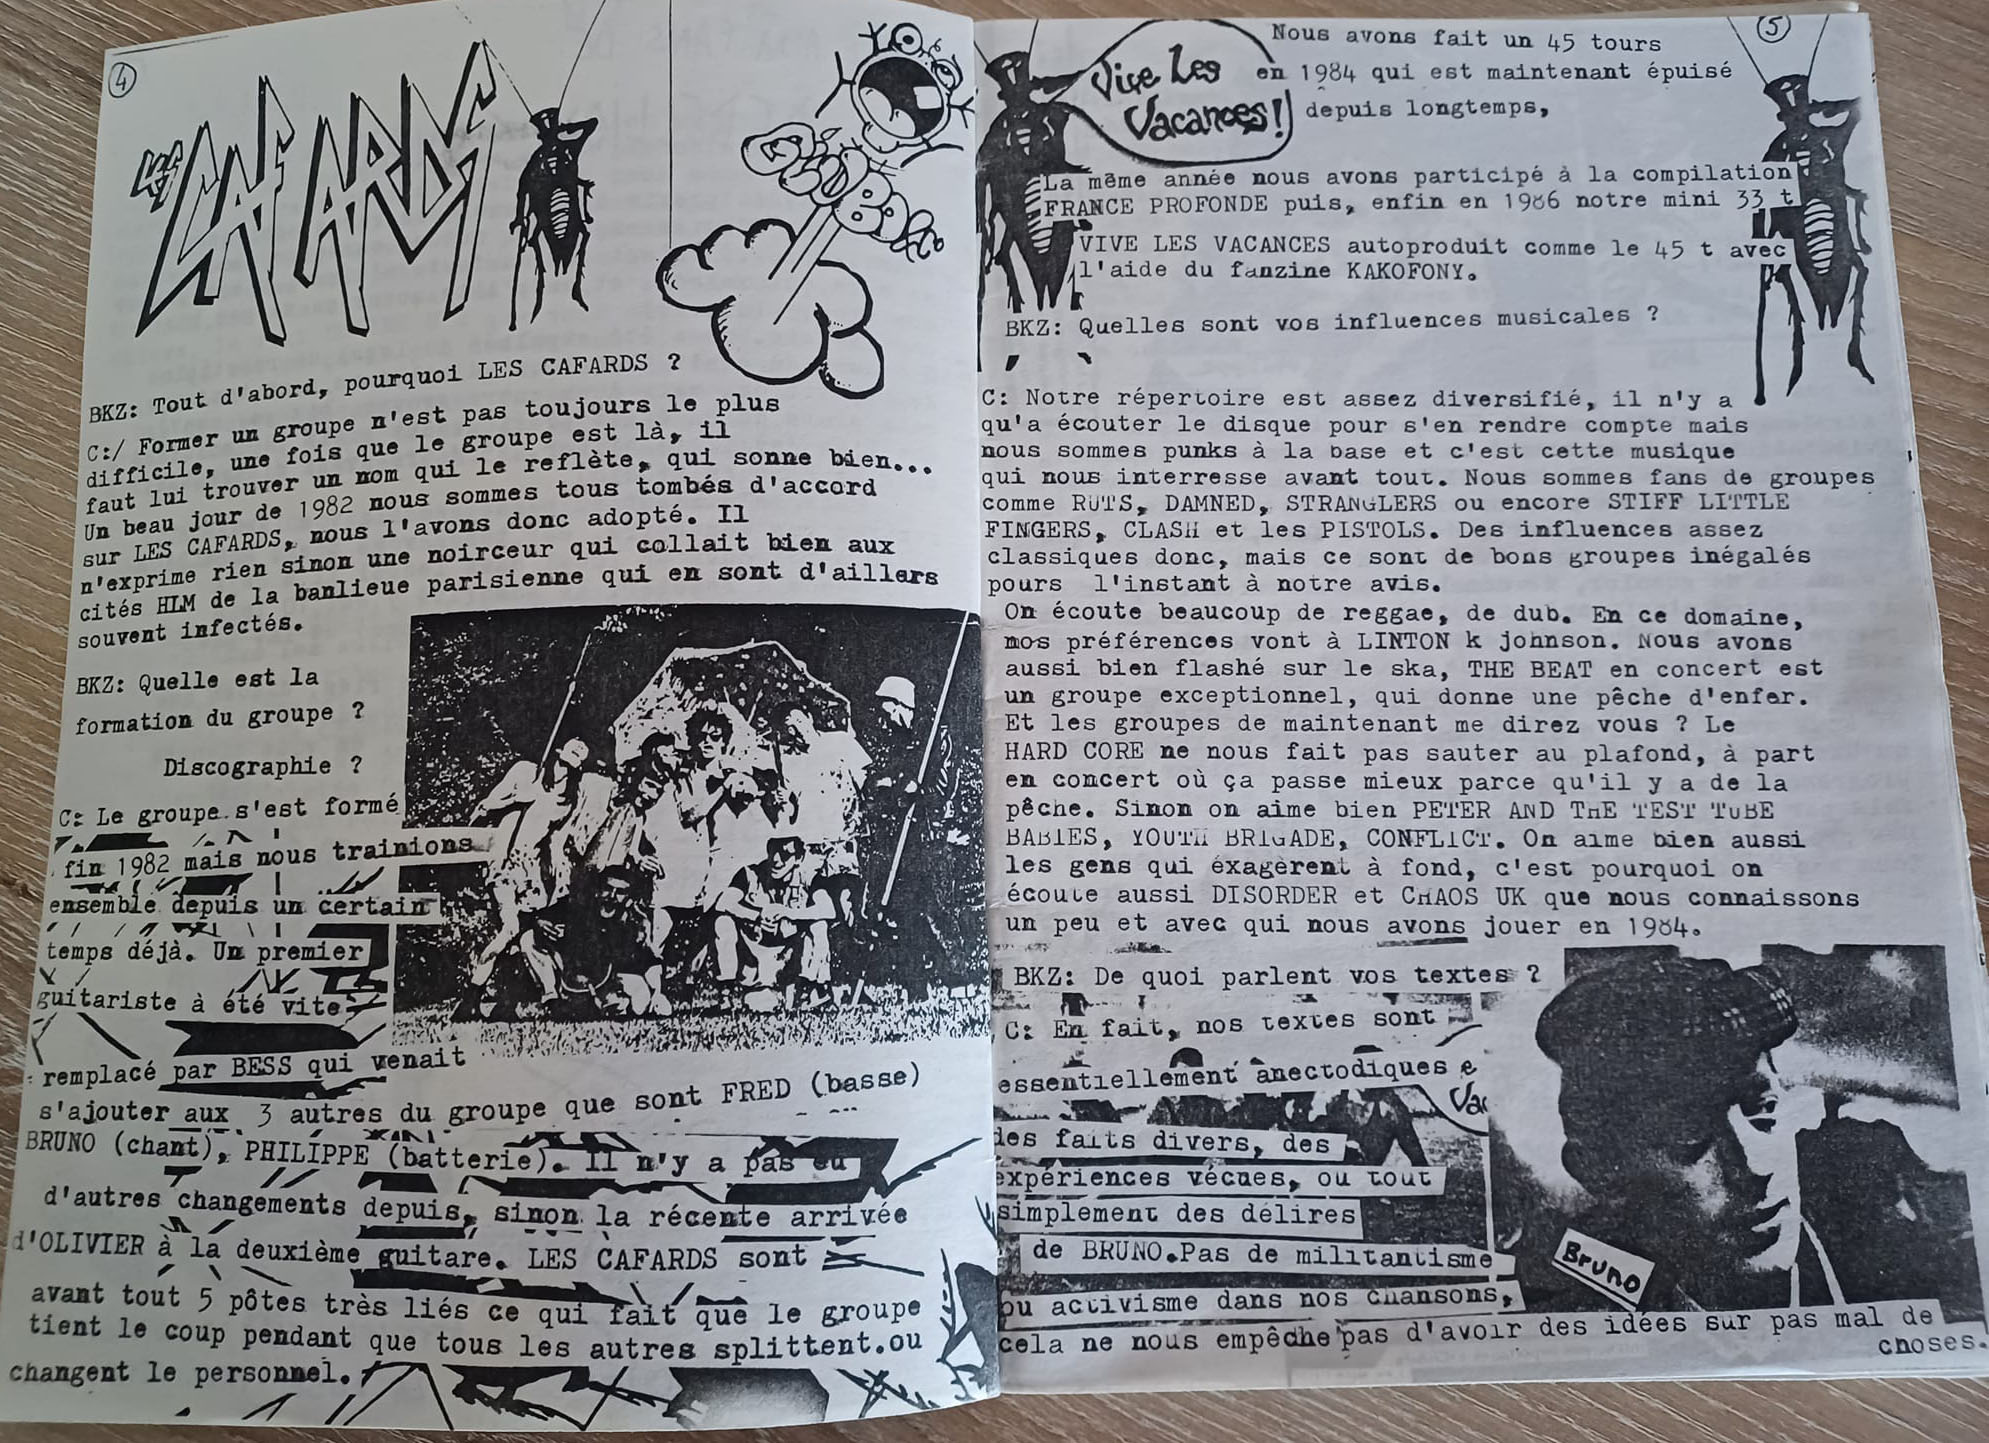 4
LES CAFARDS
BKZ: Tout d'abord, pourquoi LES CAFARDS ?
C:/ Former un groupe n'est pas toujours le plus
difficile, une fois que le groupe est là, il
faut lui trouver un nom qui le reflète, qui sonne bien...
Un beau jour de 1982 nous sommes tous tombés d'accord
sur LES CAFARDS, nous l'avons donc adopté. Il
n'exprime rien sinon une noirceur qui collait bien aux
cités HLM de la banlieue parisienne qui en sont d'aillers
souvent infectés.
BKZ: Quelle est la
formation du groupe ?
Discographie ?
C: Le groupe s'est formé
fin 1982 mais nous trainions
ensemble depuis un certain
temps déjà. Un premier
guitariste à été vite
remplacé par BESS qui venait
s'ajouter aux 3 autres du groupe que sont FRED (basse)
BRUNO (chant), PHILIPPE (batterie). Il n'y a pas eu
d'autres changements depuis, sinon la récente arrivée
d'OLIVIER à la deuxième guitare. LES CAFARDS sont
avant tout 5 pôtes très liés ce qui fait que le groupe
tient le coup pendant que tous les autres splittent.ou
changent le personnel.
5
Vive Les
Vacances!
Nous avons fait un 45 tours
en 1984 qui est maintenant épuisé
depuis longtemps,
La même année nous avons participé à la compilation
FRANCE PROFONDE puis, enfin en 1986 notre mini 33 t
VIVE LES VACANCES autoproduit comme le 45 t avec
l'aide du fanzine KAKOFONY.
BKZ: Quelles sont vos influences musicales ?
C: Notre répertoire est assez diversifié, il n'y a
qu'a écouter le disque pour s'en rendre compte mais
nous sommes punks à la base et c'est cette musique
qui nous interresse avant tout. Nous sommes fans de groupes
comme RUTS, DAMNED, STRANGLERS ou encore STIFF LITTLE
FINGERS, CLASH et les PISTOLS. Des influences assez
classiques donc, mais ce sont de bons groupes inégalés
pours l'instant à notre avis.
On écoute beaucoup de reggae, de dub. En ce domaine,
nos préférences vont à LINTON k johnson. Nous avons
aussi bien flashé sur le ska, THE BEAT en concert est
un groupe exceptionnel, qui donne une pêche d'enfer.
Et les groupes de maintenant me direz vous ? Le
HARD CORE ne nous fait pas sauter au plafond, à part
en concert où ça passe mieux parce qu'il y a de la
pêche. Sinon on aime bien PETER AND THE TEST TUBE
BABIES, YOUTH BRIGADE, CONFLICT. On aime bien aussi
les gens qui éxagèrent à fond, c'est pourquoi on
écoute aussi DISORDER et CHAOS UK que nous connaissons
un peu et avec qui nous avons jouer en 1984.
BKZ: De quoi parlent vos textes ?
C: En fait, nos textes sont
essentiellement anectodiques e
Vac
des faits divers, des
expériences vécues, ou tout
simplement des délires
de BRUNO.Pas de militantisme
ou activisme dans nos chansons,
cela ne nous empêche pas d'avoir des idées sur pas mal de
choses.
Bruno